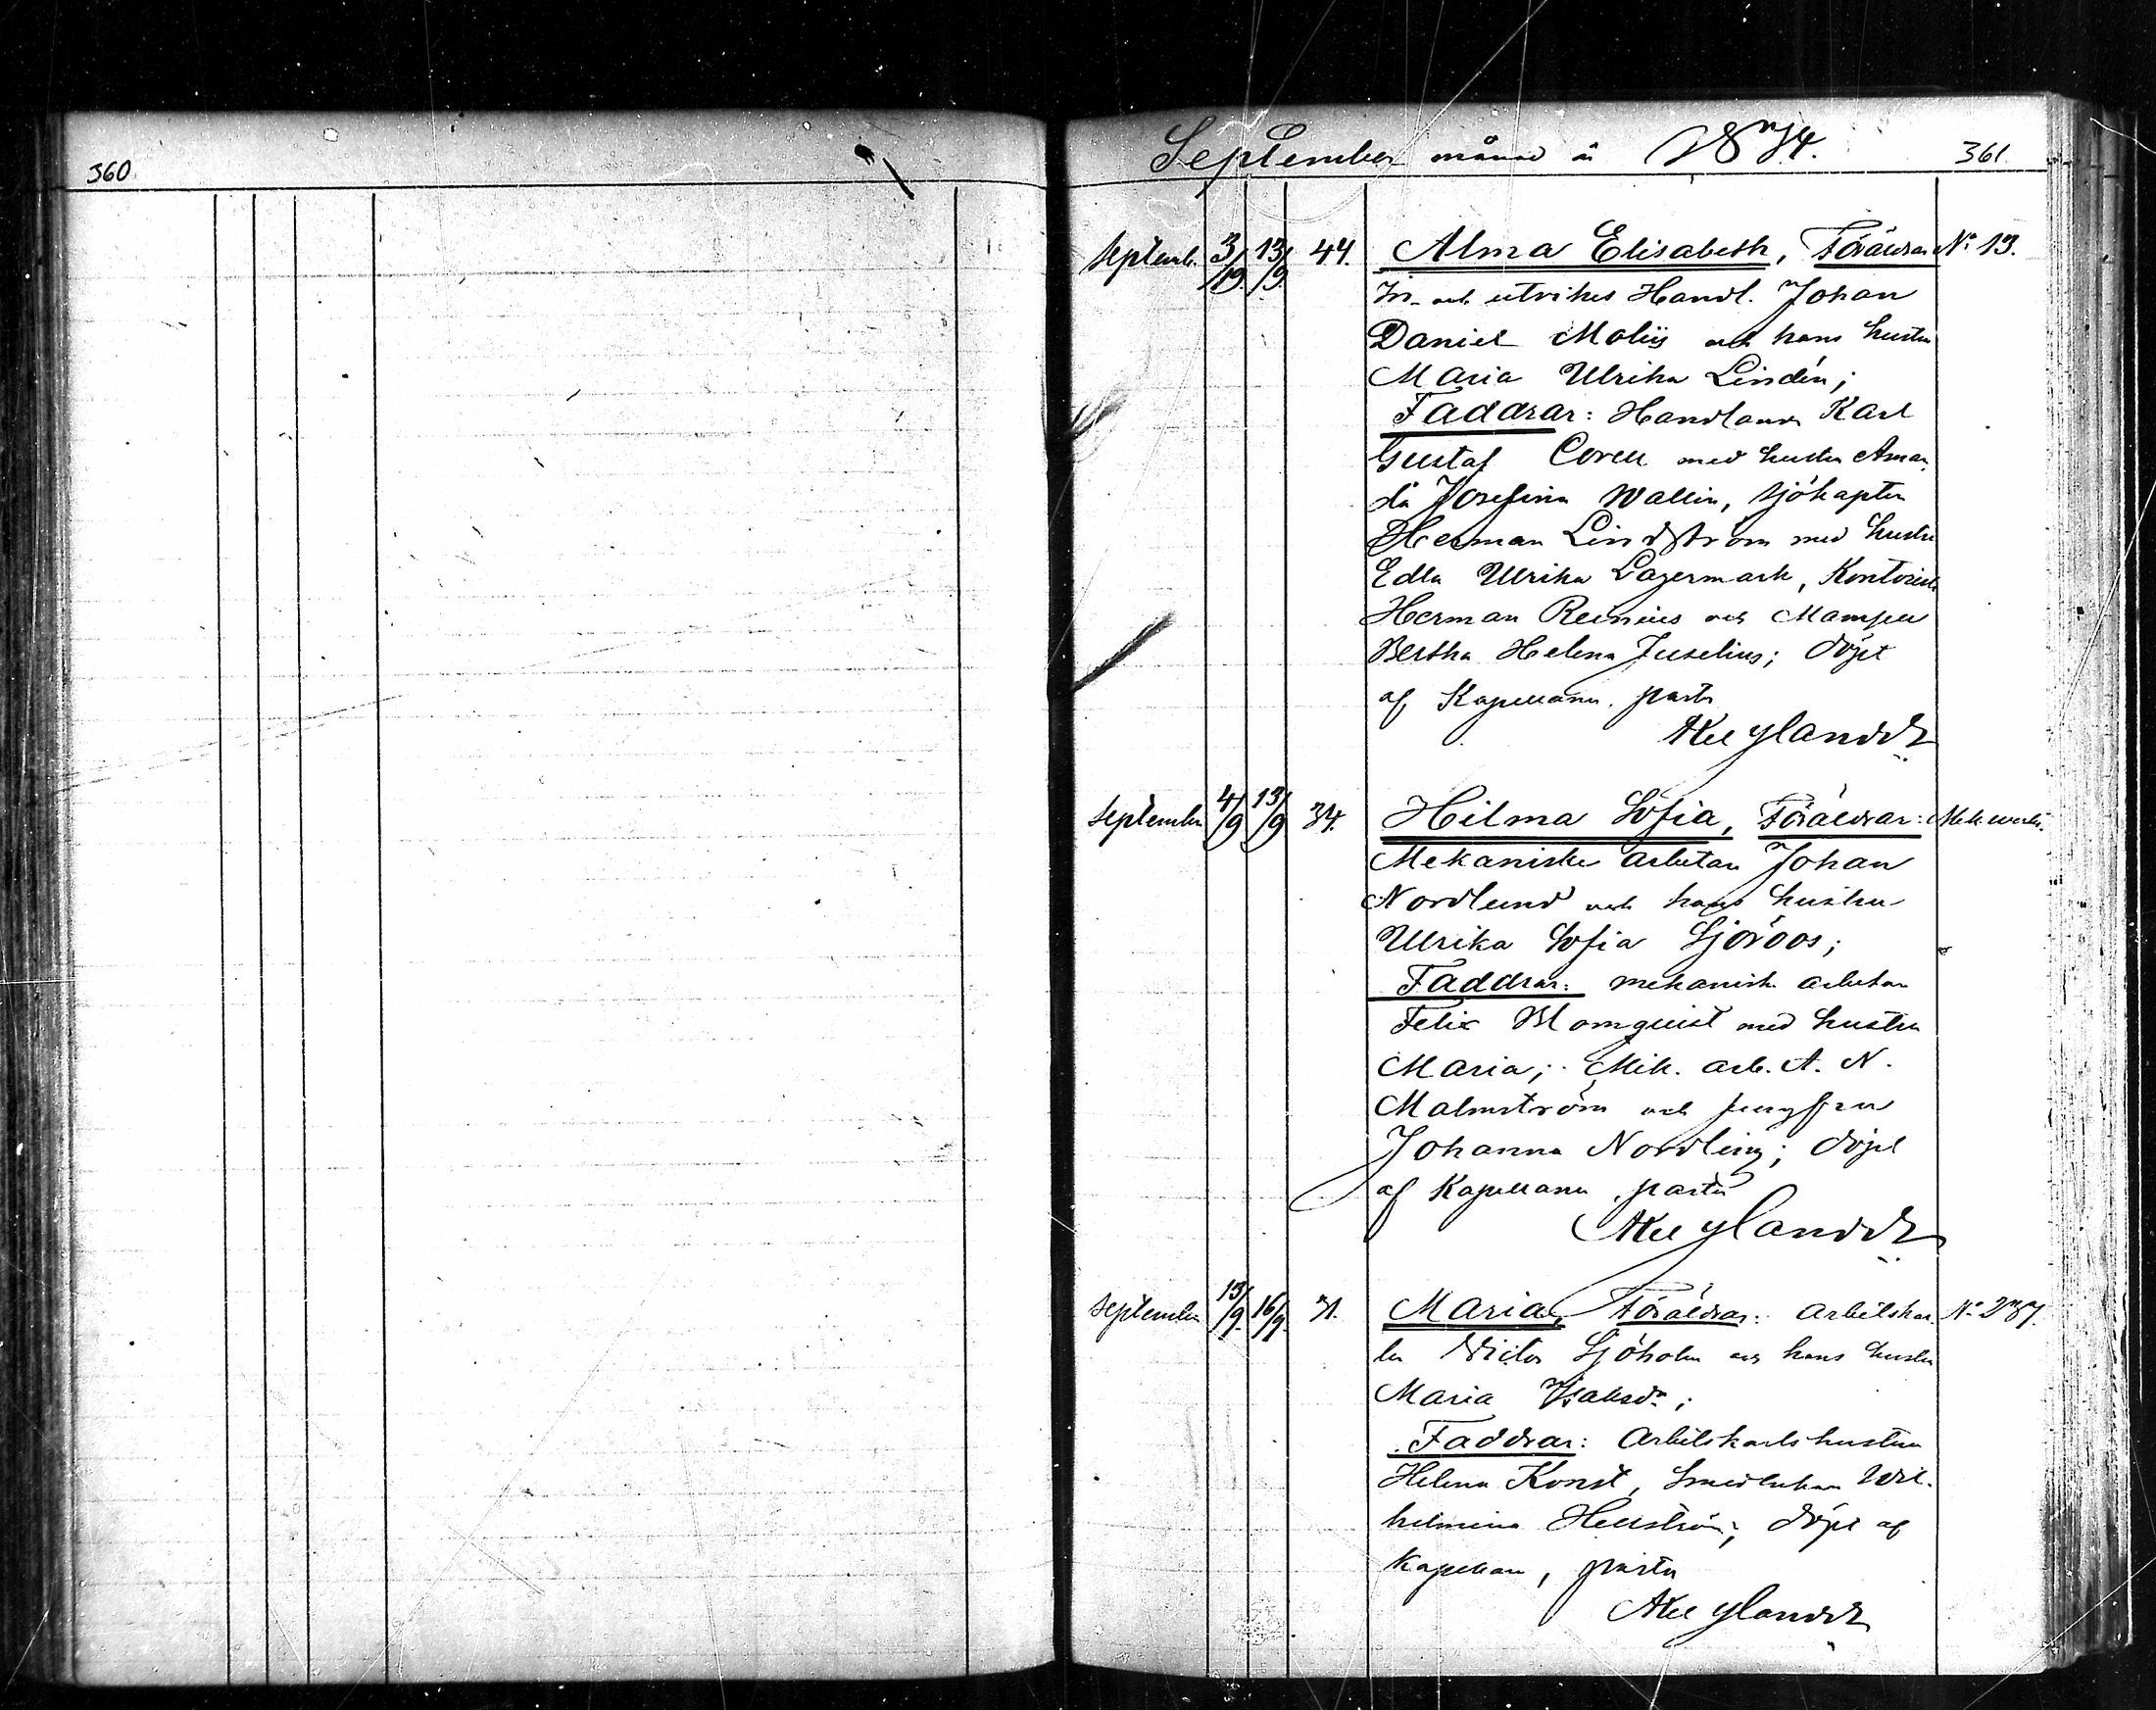 360
September månad år 1874. 361.
Septemb. 3/9. 13/9. 44. Alma Elisabeth, Föräldrar No 13.
In- och utrikes Handl. Johan
Daniel Moliis och hans hustru
Maria Ulrika Lindén;
Faddrar: Handlanden Karl
Gustaf med hustru Aman
da Josefina Wallin, Sjökapten
Herman Lindström med hustru
Edla Ulrika Lagermark, Kontorist
Herman Reinius och Mamsell
Bertha Helena Juselius; döpt
af Kapellanen, pastor
Nylander
September 4/9 13/9 34. Hilma Sofia, Föräldrar: Mek. werkst.
Mekaniske arbetare Johan
Nordlund och hans hustru
Ulrika Sofia Sjöroos;
Faddrar: mekanisk arbetare
Felix Blomquist med hustru
Maria; Mek. arb. A. N.
Malmström och jungfru
Johanna Nordling; döpt
af Kapellanen, pastor
Nylander
September 13/9. 16/9. 31. Maria, Föräldrar: Arbetskar No 237.
len Victor Sjöholm och hans hustru
Maria Isaksdr;
Faddrar: Arbetskarlshustrun
Helena Konst, Wil-
helmina Hellström; döpt af
Kapellan, pastor
Nylander